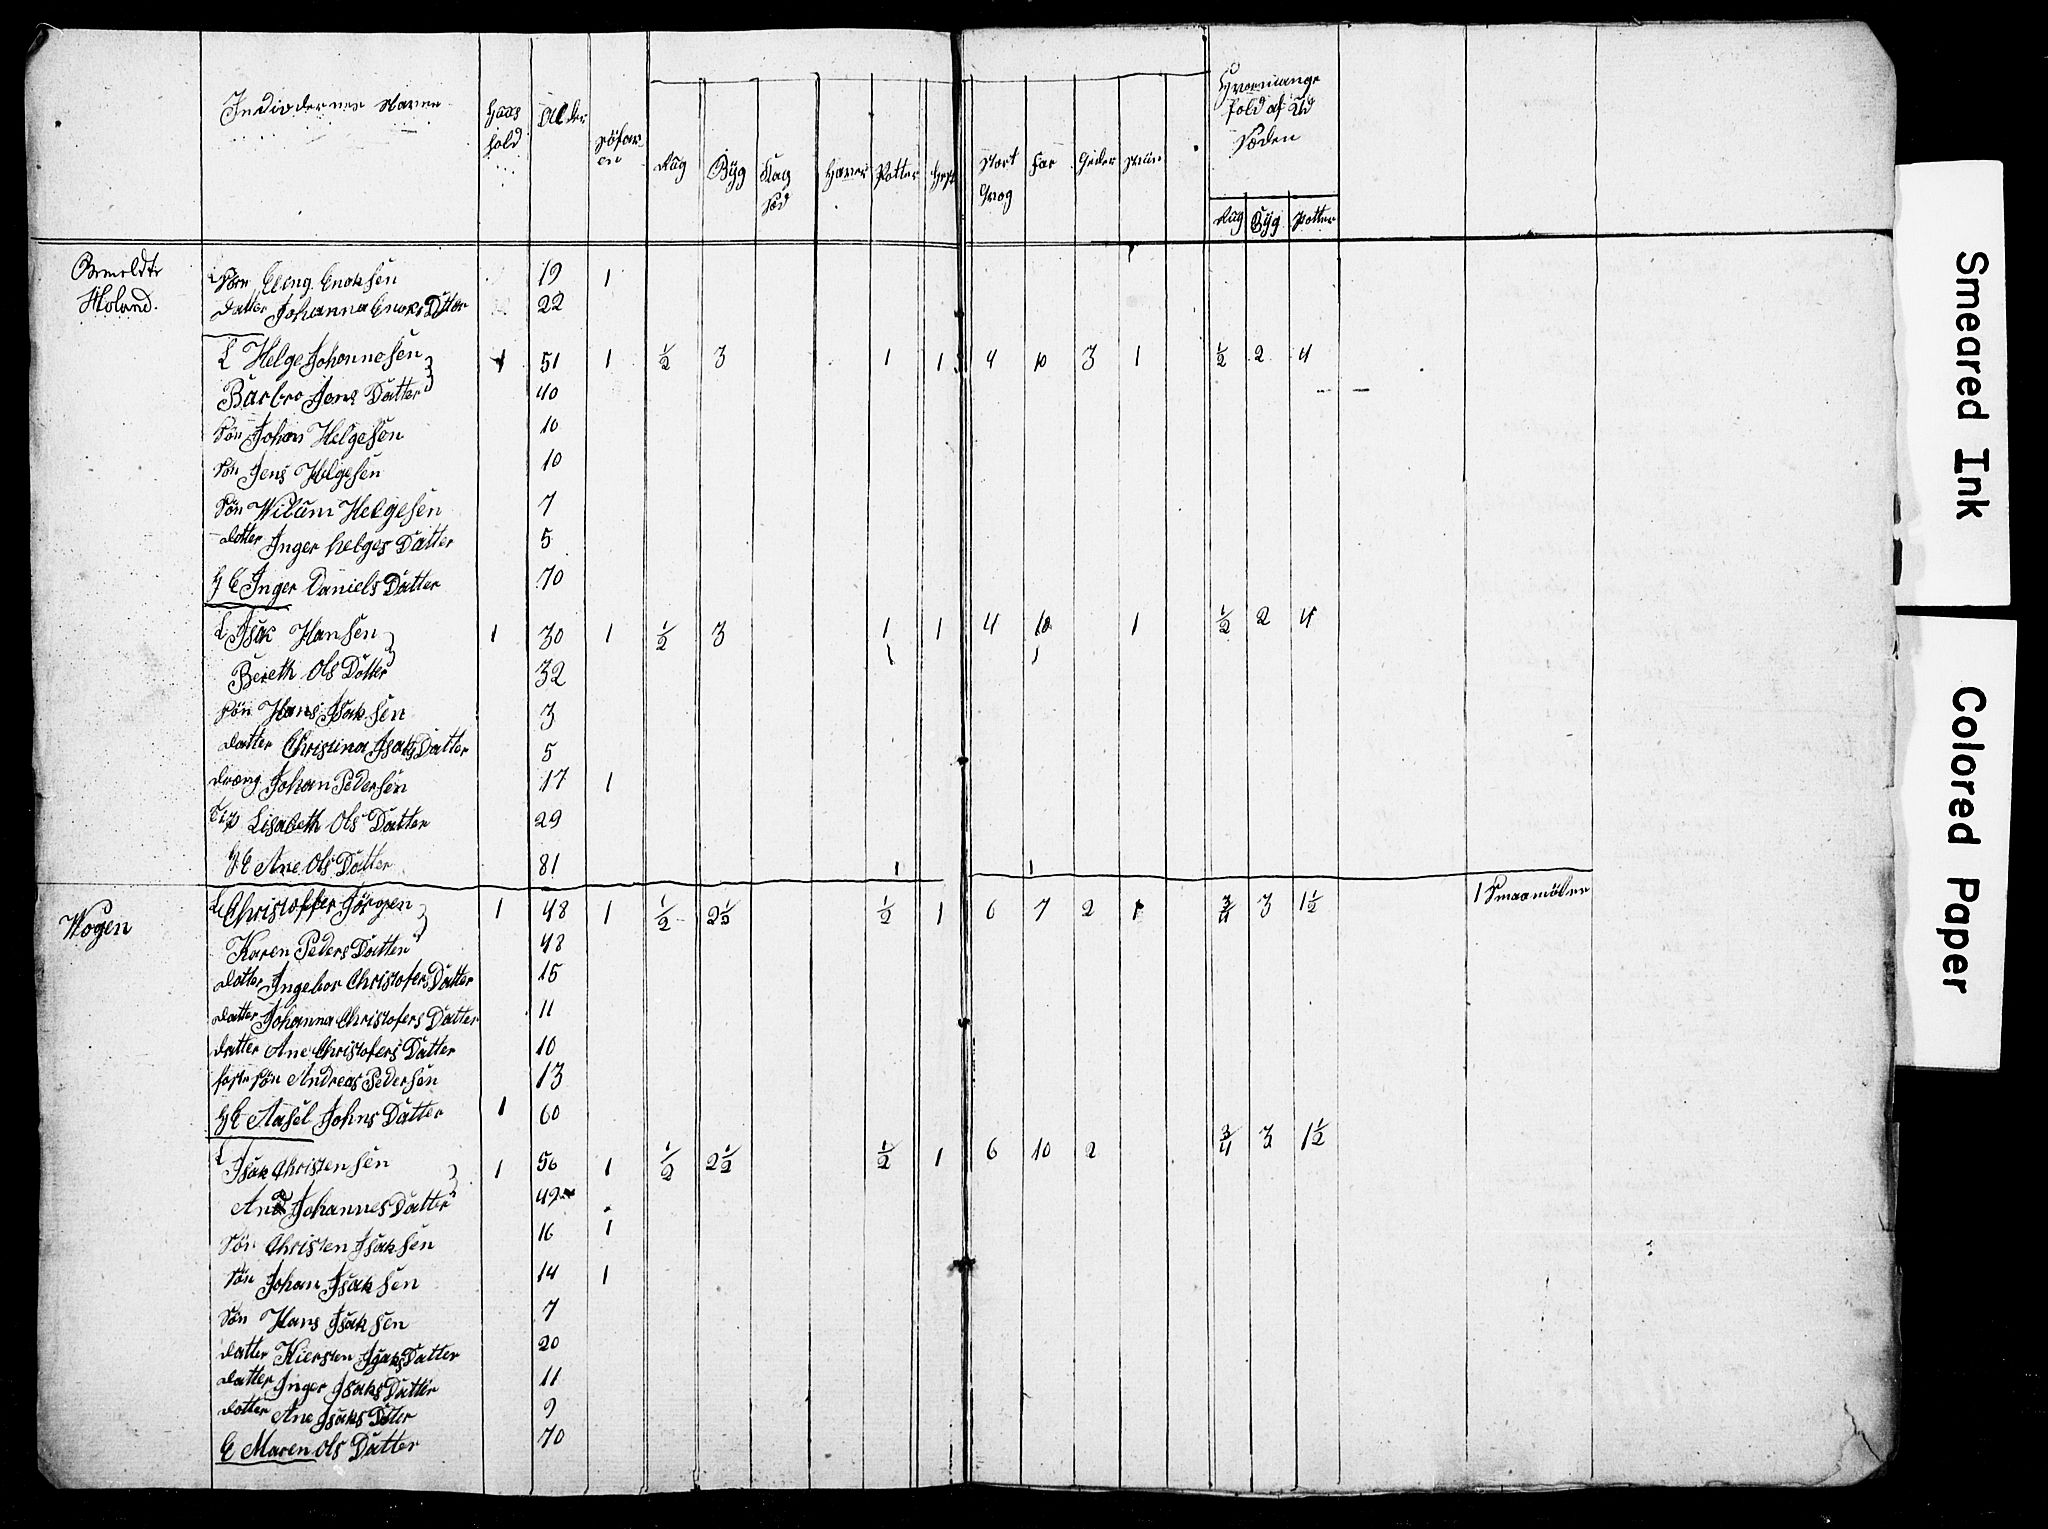 Individernes Navne
Huus hold
Alder
Søfaren
Rug
Byg
Havre
Potter
Hest
Stort Qvæg
Faar
Geder
Sviin
Hvormange fold af Ud Sæden
Rug Byg Potter
Bemeldte Moland.
Søn Eleng Enoksen 19 1
Datter Johanna Enoks Datter 22
L Helge Johannesen 1 51 1 1/2 3 1 1 4 10 3 1 1/2 2 4
Barbro Jens Datter 40
Søn Johan Helgesen 10
Søn Jens Helgesen 10
Søn Wilum Helgesen 7
Datter Inger helges Datter 5
H E Inger Daniels Datter 70
L Isak Hansen 1 30 1 1/2 3 1 1 4 10 1 1/2 2 4
Bereth Ols Datter 32
Søn Hans Isaksen 3
Datter Christina Isaks Datter 5
Dræng Johan Pedersen 17 1
Lisabeth Ols Datter 29
H E Ane Ols Datter 81 1 1
Wogen
L Christoffer Jörgen 1 48 1 1/2 2 1/2 1/2 1 6 7 2 1 3/4 3 1 1/2 1 Smaamölne
Karen Peders Datter 48
Datter Ingebor Christofers Datter 15
Datter Johanna Christofers Datter 11
Datter Ane Christofers Datter 10
foster søn Andreas Pedersen 13
H E Aasel Johns Datter 1 60
L Isak Christensen 1 56 1 1/2 2 1/2 1/2 1 6 10 2 3/4 3 1 1/2
Ane Johannes Datter 49
Søn Christen Isaksen 16 1
Søn Johan Isaksen 14 1
Søn Hans Isaksen 7
Datter Kiersten Isaks Datter 20
Datter Inger Isaks Datter 11
Datter Ane Isaks Datter 9
E Maren Ols Datter 70
Smeared Ink
Colored Paper